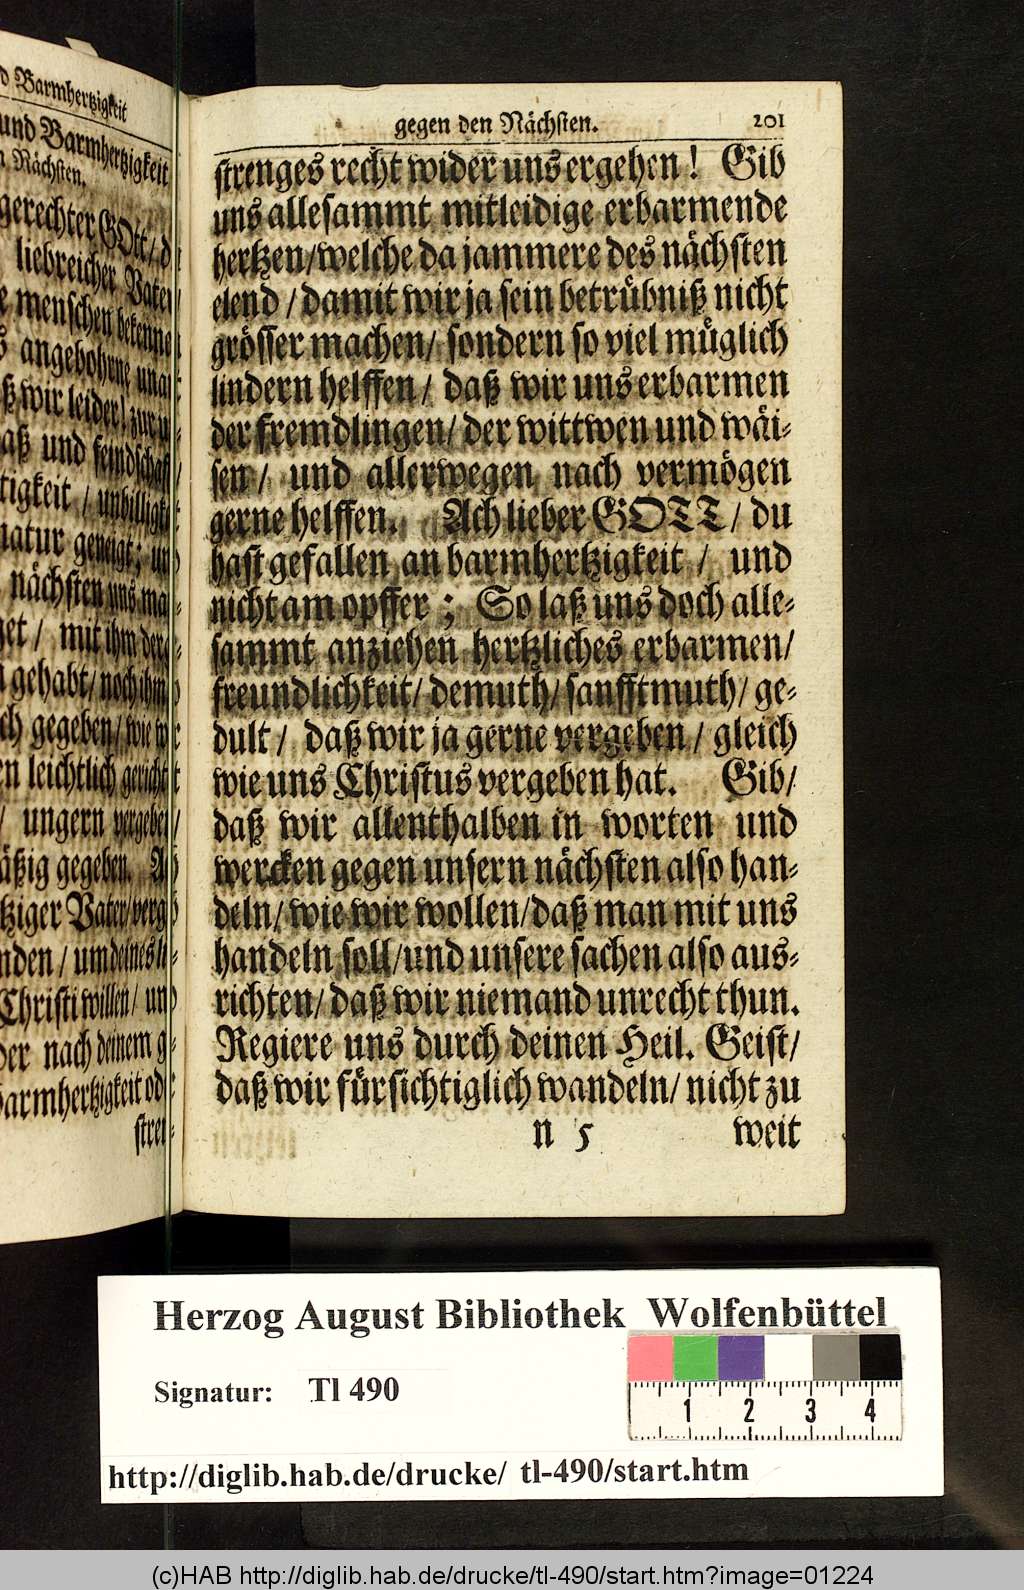 d Barmhertzigkeit
und Barmhertzigkeit
n Nächsten.
gerechter GOtt/ d
liebreicher Vater
e menschen bekenne
s angebohrne una
ß wir leider! zur u
aß und feindschaft
tigkeit / unbilligk
natur geneigt; un
nächsten uns ma
get / mit ihm der
n gehabt/ noch ihm
ch gegeben/ wie w
en leichtlich gericht
/ ungern vergeben
äßig gegeben. A
tziger Vater/verg
nden / um deines li
Christi willen/ un
der nach deinem g
Barmhertzigkeit od
stren
gegen den Nächsten. 201
strenges recht wider uns ergehen! Gib
uns allesammt mitleidige erbarmende
hertzen/welche da jammere des nächsten
elend / damit wir ja sein betrübniß nicht
grösser machen/ sondern so viel müglich
lindern helffen / daß wir uns erbarmen
der fremdlingen/ der wittwen und wäi-
sen / und allerwegen nach vermögen
gerne helffen. Ach lieber GOTT / du
hast gefallen an barmhertzigkeit / und
nicht am opffer ; So laß uns doch alle-
sammt anziehen hertzliches erbarmen/
freundlichkeit/ demuth/ sanfftmuth/ ge-
dult / daß wir ja gerne vergeben / gleich
wie uns Christus vergeben hat. Gib/
daß wir allenthalben in worten und
wercken gegen unsern nächsten also han-
deln/ wie wir wollen/daß man mit uns
handeln soll/und unsere sachen also aus-
richten/ daß wir niemand unrecht thun.
Regiere uns durch deinen Heil. Geist/
daß wir fürsichtiglich wandeln/ nicht zu
n 5 weit
Herzog August Bibliothek Wolfenbüttel
Signatur: Tl 490
1 2 3 4
http://diglib.hab.de/drucke/ tl-490/start.htm
(c)HAB http://diglib.hab.de/drucke/tl-490/start.htm?image=01224